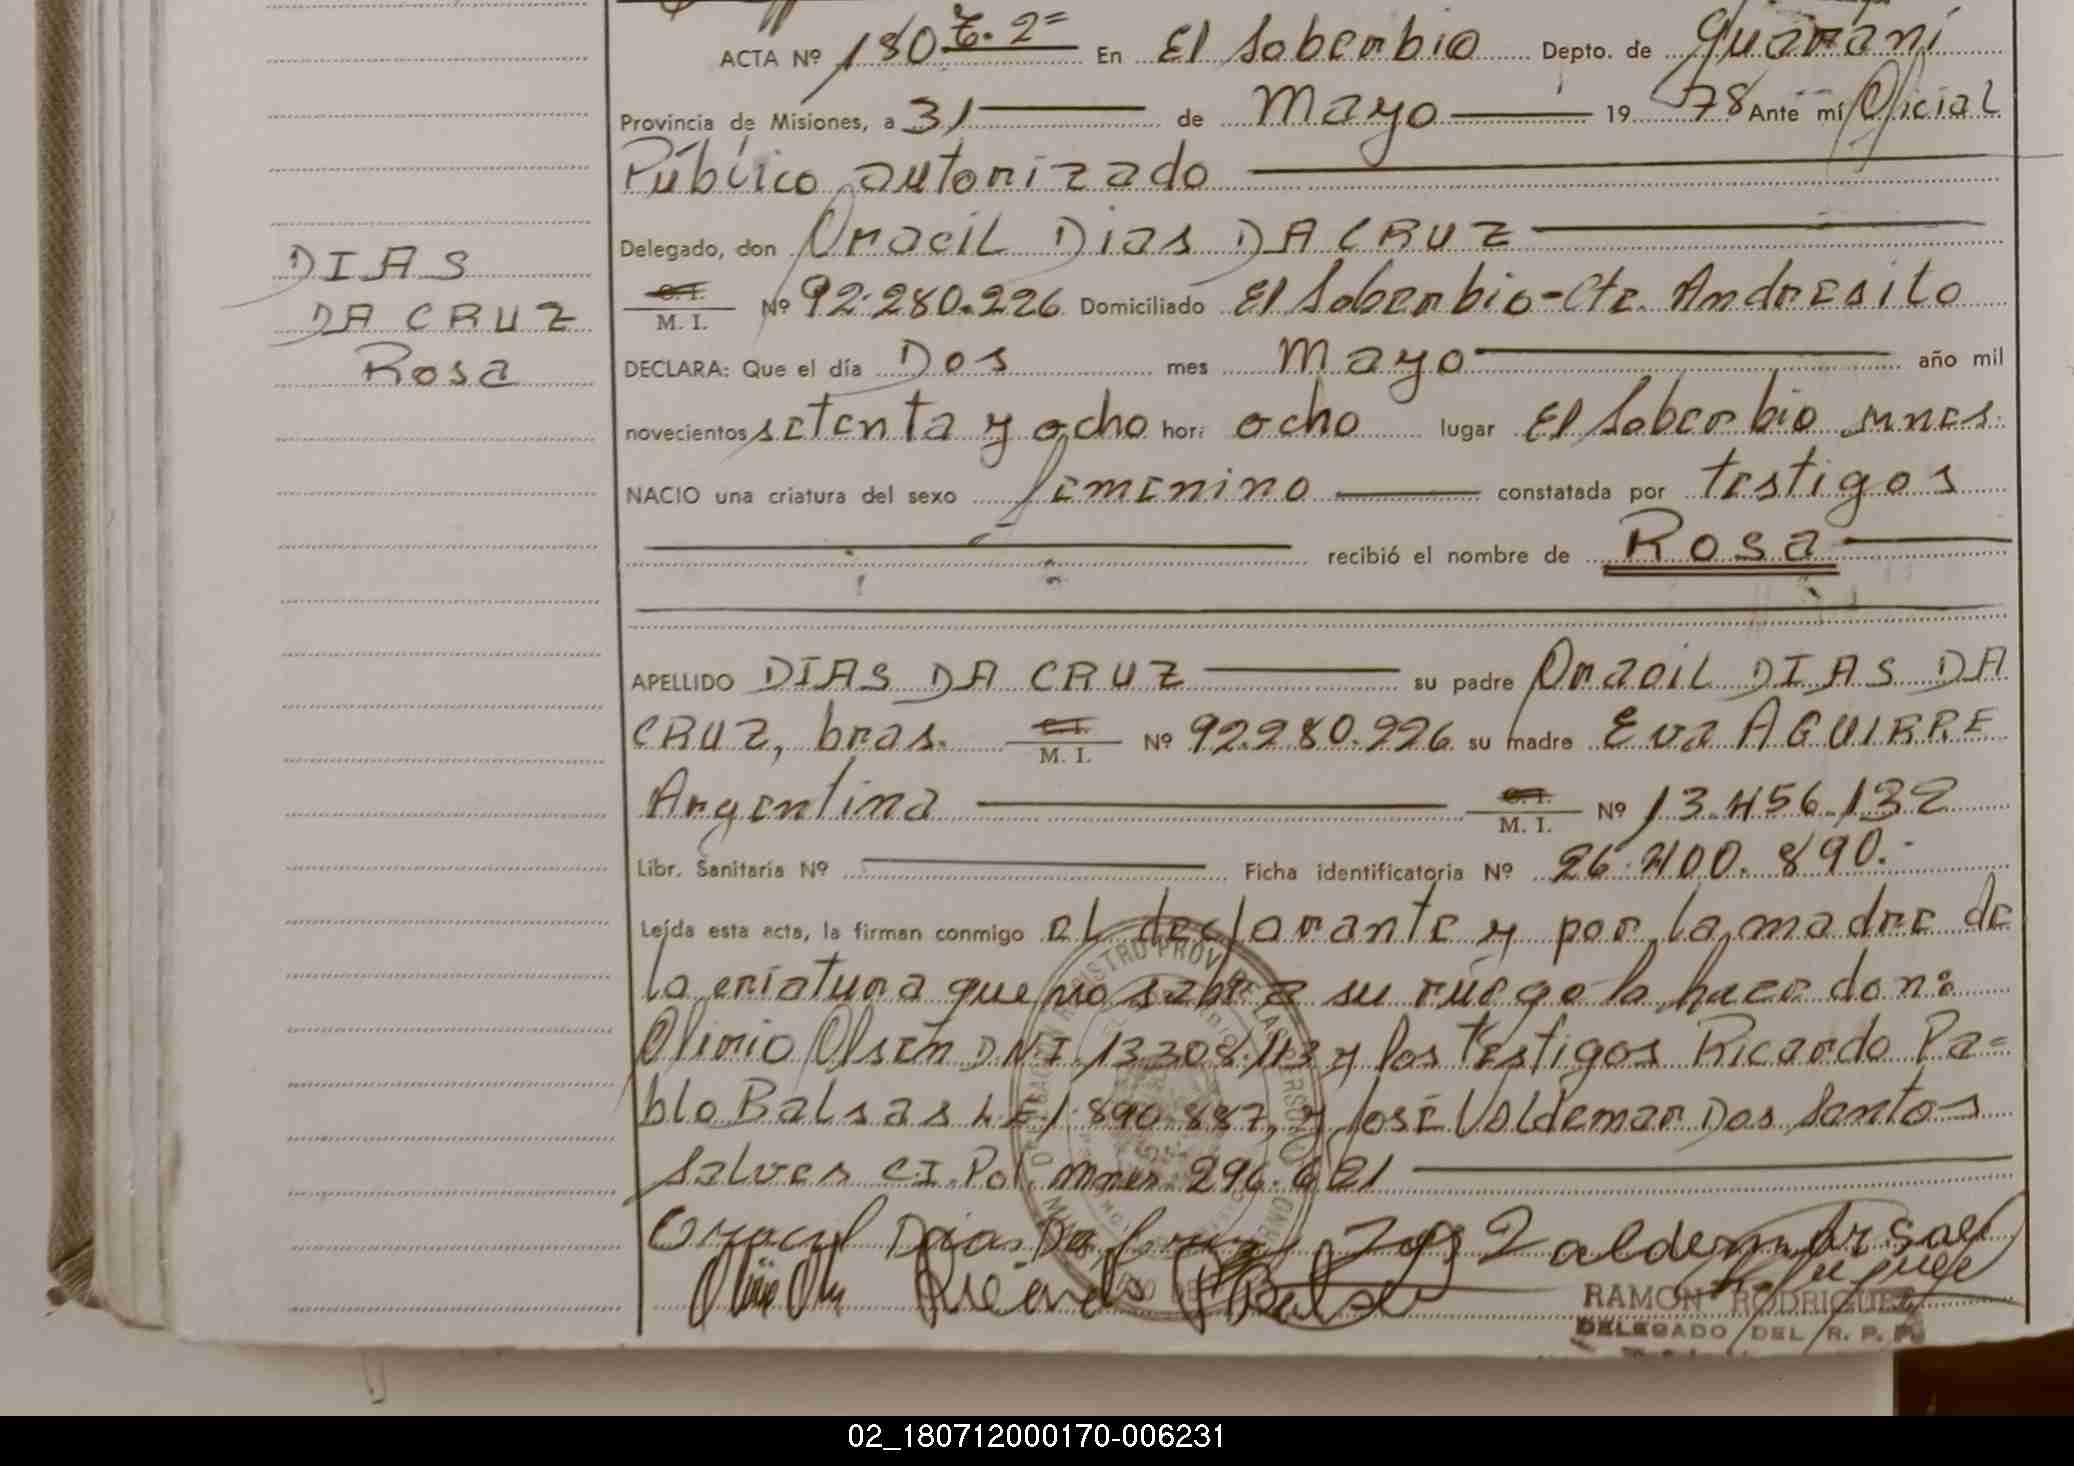 ACTA Nº 180 T. 2º En El Soberbio Depto. de Guaraní
Provincia de Misiones, a 31 de Mayo 19 78 Ante mí Oficial
Público autorizado
Delegado, don Oracil Dias DA CRUZ
C.I. M. I. Nº 92.280.226 Domiciliado El Soberbio-Cte. Andresito
DIAS
DA CRUZ
Rosa
DECLARA: Que el día Dos mes Mayo año mil
novecientos setenta y ocho hor: ocho lugar El Soberbio mnes.
NACIO una criatura del sexo femenino constatada por testigos
recibió el nombre de Rosa
APELLIDO DIAS DA CRUZ su padre Oracil DIAS DA
CRUZ, bras. C.I. M. I. Nº 92.280.226 su madre Eva AGUIRRE
Argentina C.I. M. I. Nº 13.456.132
Libr. Sanitaria Nº Ficha identificatoria Nº 26.400.890.-
Leída esta acta, la firman conmigo el declarante y por la madre de
la criatura que no sabe a su ruego lo hace don:
Olirio Olsen DNI 13.308.113 y los testigos Ricardo Pa=
blo Balsas L E 1.890.887, y José Valdemar Dos Santos
Salves C.I. Pol. mnes. 296.621
Oracil Dias Da Cruz
RAMON RODRIGUEZ
DELEGADO DEL R. P. P.
02_180712000170-006231